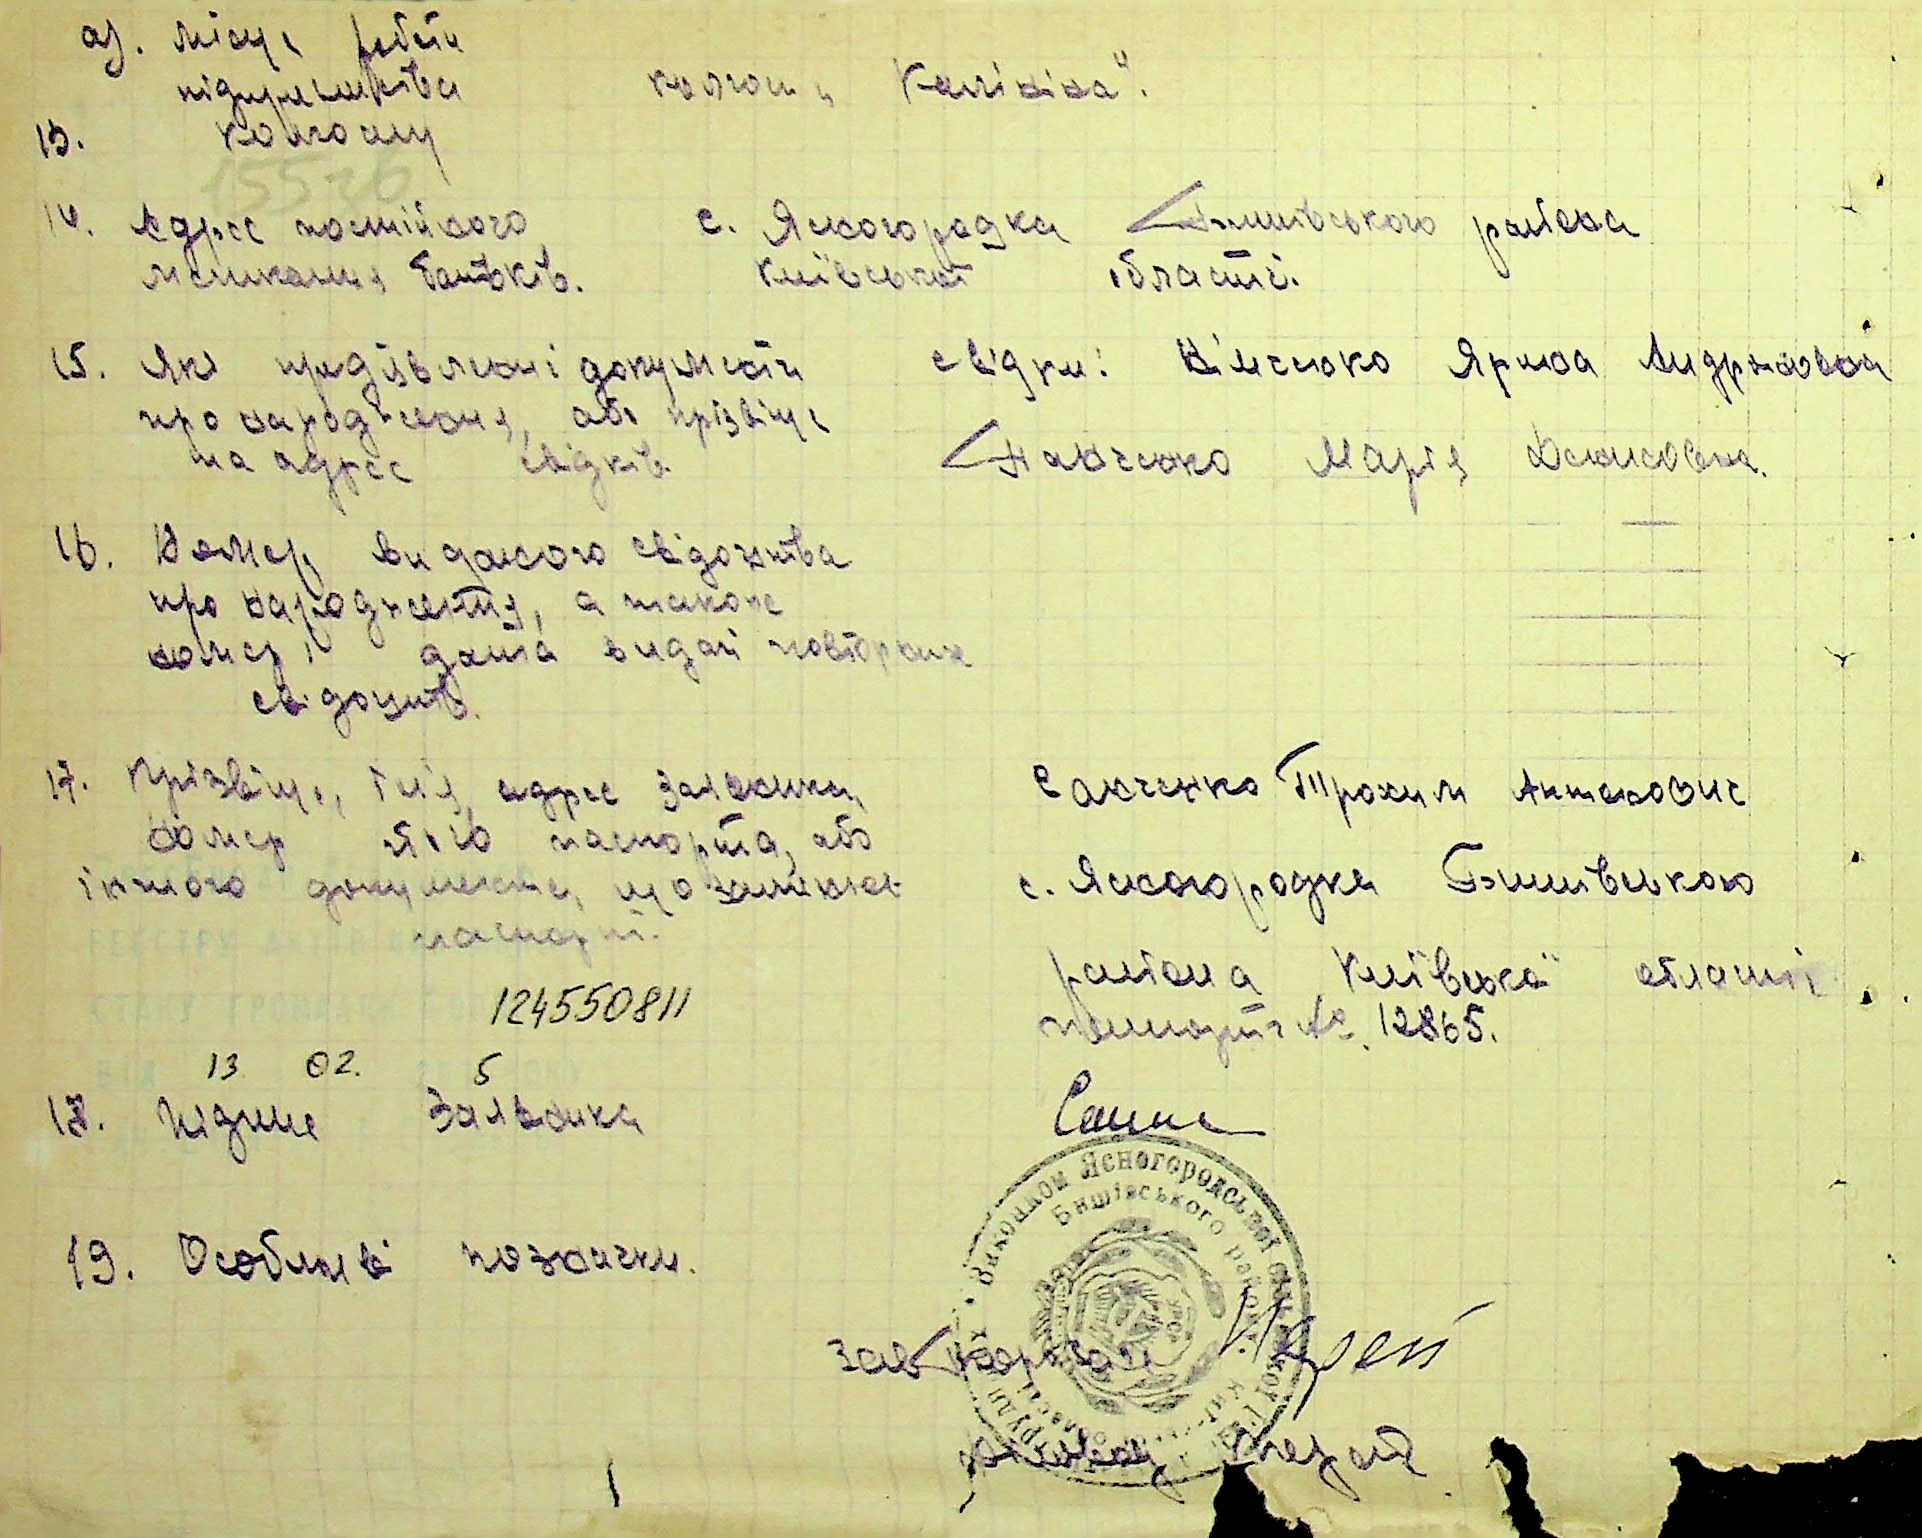 а). місце роботи
підприємства
колгосп „Калініна“.
13. колгоспу
14. Адрес постійного
с. Ясногородка Бишівського района
мешкання батьків.
Київської області.
15. Які пред'явлені документи
свідки: Вімченко Ярина Андріяновна
про народження, або прізвище
та адрес свідків.
Савченко Марія Денисовна.
16. Номер виданого свідоцтва
про народження, а також
номер і дата видачі повторних
свідоцтв.
17. Прізвище, ім'я, адрес заявника,
Савченко Трохим Антонович
номер його паспорта, або
с. Ясногородка Бишівського
іншого документа, що заміняє
паспорт.
района Київської області
124550811
паспорт № 12865.
13 02. 5
18. Підпис заявника
19. Особливі позначки.
Виконком Ясногородської сільської
Бишівського району